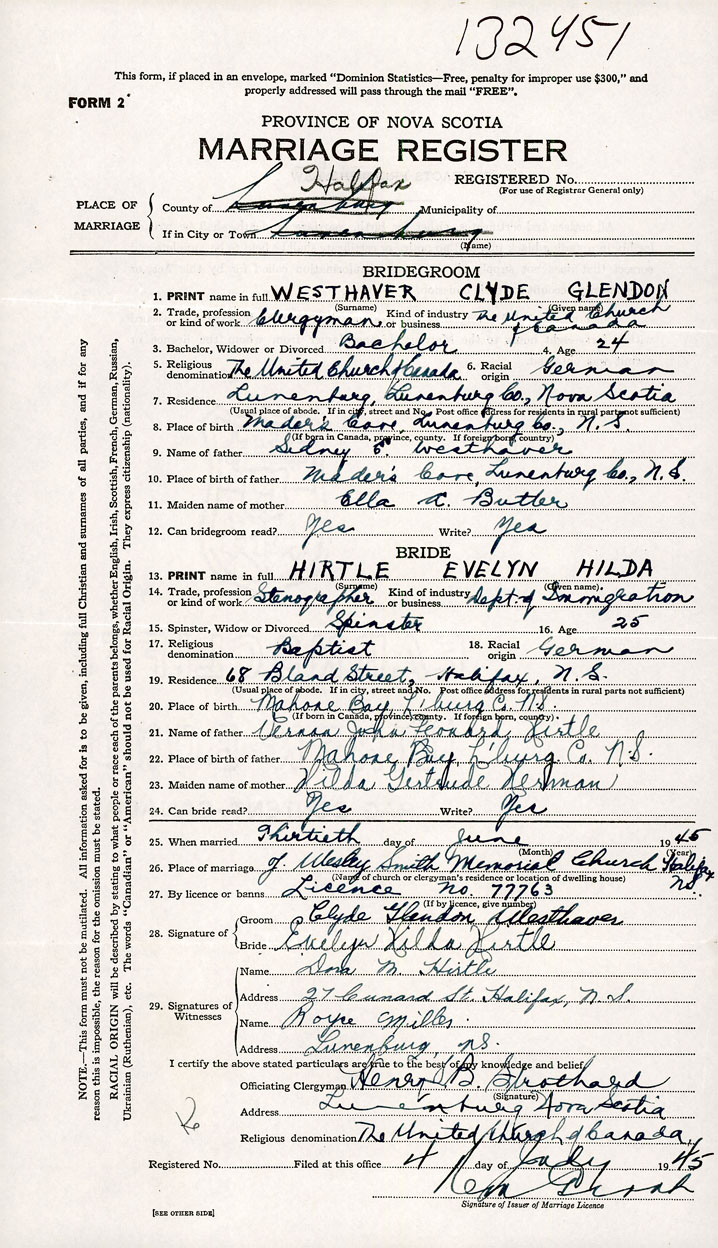 132451
This form, if placed in an envelope, marked "Dominion Statistics—Free, penalty for improper use $300," and
properly addressed will pass through the mail "FREE".
FORM 2
PROVINCE OF NOVA SCOTIA
MARRIAGE REGISTER
REGISTERED No.
(For use of Registrar General only)
PLACE OF MARRIAGE
Halifax
County of Lunenburg Municipality of
If in City or Town Lunenburg
(Name)
BRIDEGROOM
1. PRINT name in full WESTHAVER CLYDE GLENDON
(Surname) (Given name)
2. Trade, profession or kind of work Clergyman Kind of industry or business The United Church of Canada
3. Bachelor, Widower or Divorced Bachelor 4. Age 24
5. Religious denomination The United Church of Canada 6. Racial origin German
7. Residence Lunenburg, Lunenburg Co., Nova Scotia
(Usual place of abode. If in city, street and No. Post office address for residents in rural parts not sufficient)
8. Place of birth Mader's Cove, Lunenburg Co., N.S.
(If born in Canada, province, county. If foreign born, country)
9. Name of father Sidney E. Westhaver
10. Place of birth of father Mader's Cove, Lunenburg Co., N.S.
11. Maiden name of mother Ella Butler
12. Can bridegroom read? Yes Write? Yes
BRIDE
13. PRINT name in full HIRTLE EVELYN HILDA
(Surname) (Given name)
14. Trade, profession or kind of work Stenographer Kind of industry or business Dept. of Immigration
15. Spinster, Widow or Divorced Spinster 16. Age 25
17. Religious denomination Baptist 18. Racial origin German
19. Residence 68 Bland Street, Halifax, N.S.
(Usual place of abode. If in city, street and No. Post office address for residents in rural parts not sufficient)
20. Place of birth Mahone Bay L'burg Co. N.S.
(If born in Canada, province, county. If foreign born, country).
21. Name of father Vernon John Leonard Hirtle
22. Place of birth of father Mahone Bay L'burg Co. N.S.
23. Maiden name of mother Hilda Gertrude Herman
24. Can bride read? Yes Write? Yes
25. When married Thirtieth day of June 1945
(Month) (Year)
26. Place of marriage J Wesley Smith Memorial Church Halifax N.S.
(Name of church or clergyman's residence or location of dwelling house)
27. By licence or banns Licence no. 77763
(If by licence, give number)
28. Signature of
Groom Clyde Glendon Westhaver
Bride Evelyn Hilda Hirtle
29. Signatures of Witnesses
Name Dora M. Hirtle
Address 27 Cunard St. Halifax, N.S.
Name Royce Miller
Address Lunenburg, N.S.
I certify the above stated particulars are true to the best of my knowledge and belief.
Officiating Clergyman Henry B. Strothard
(Signature)
Address Lunenburg Nova Scotia
Religious denomination The United Church of Canada
Registered No. Filed at this office 4 day of July 1945
Signature of Issuer of Marriage Licence
[SEE OTHER SIDE]
NOTE.—This form must not be mutilated. All information asked for is to be given, including full Christian and surnames of all parties, and if for any
reason this is impossible, the reason for the omission must be stated.
RACIAL ORIGIN will be described by stating to what people or race each of the parents belongs, whether English, Irish, Scottish, French, German, Russian,
Ukrainian (Ruthenian), etc. The words "Canadian" or "American" should not be used for Racial Origin. They express citizenship (nationality).